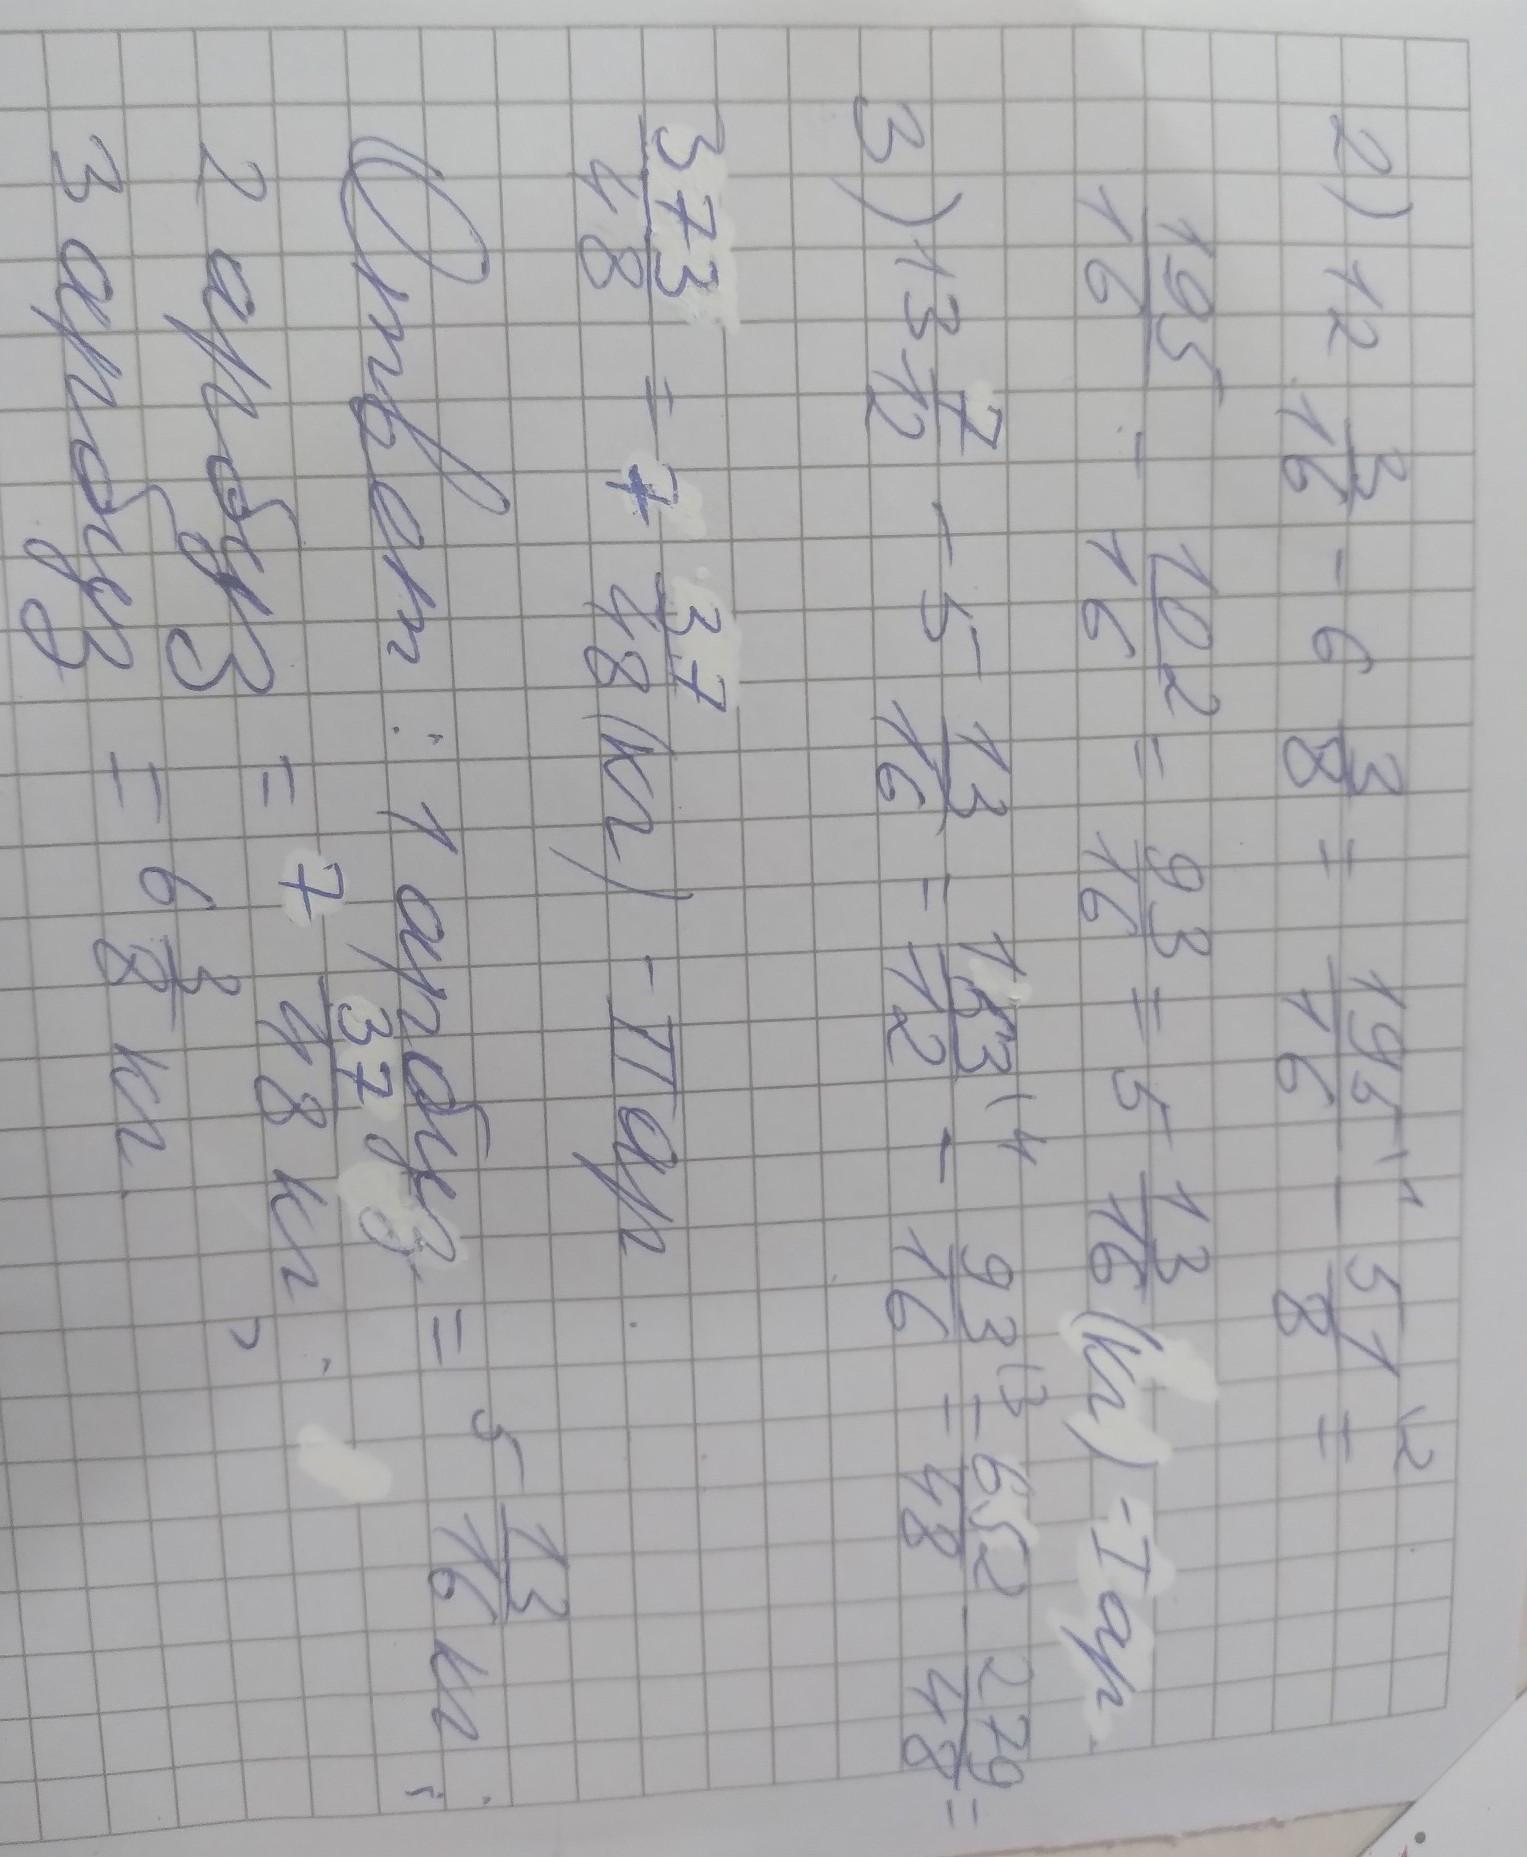 2) 12 3/16 - 6 3/8 = 195/16 \1 - 51/8 \2 =
195/16 - 102/16 = 93/16 = 5 13/16 (кг) - I ар
3) 13 7/12 - 5 13/16 = 163/12 (4 - 93/16 (3 = 652/48 - 279/48 =
373/48 = 7 37/48 (кг) - II ар.
Ответ: 1 арбуз = 5 13/16 кг;
2 арбуз = 7 37/48 кг,
3 арбуз = 6 3/8 кг